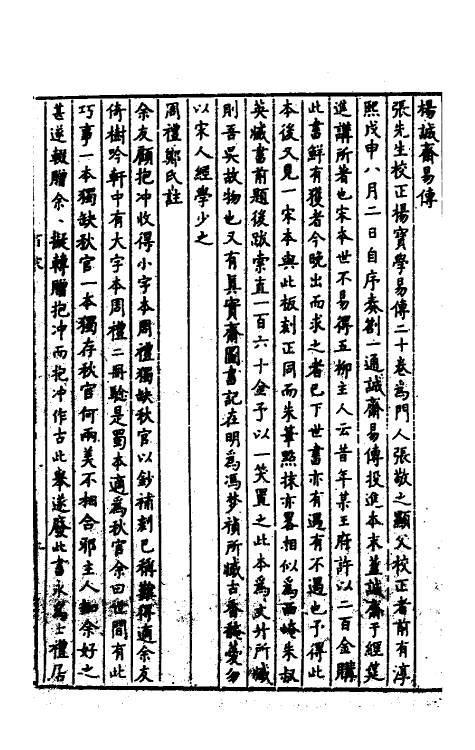 楊誠齋易傳
張先生校正楊寶學易傳二十卷爲門人張敬之顯父校正者前有淳
熙戊申八月二日自序奏劄一通誠齋易傳投進本末蓋誠齋于經筵
進講所著也宋本世不易得五柳主人云昔年某王府許以二百金購
此書鮮有獲者今晚出而求之者已下世書亦有遇有不遇也予得此
本後又見一宋本與此板刻正同而朱筆點抹亦畧相似爲西崦朱叔
英臧書前題後跋索直一百六十金予以一笑置之此本爲文升所臧
則吾吳故物也又有真實齋圖書記在明爲馮夢禎所臧古香馣薆勿
以宋人經學少之
周禮鄭氏註
余友顧抱冲收得小字本周禮獨缺秋官以鈔補刻已稱難得適余友
倚樹吟軒中有大字本周禮二冊驗是蜀本適爲秋官余曰世間有此
巧事一本獨缺秋官一本獨存秋官何兩美不相合邪主人知余好之
甚逆輟贈余、擬轉贈抱冲而抱冲作古此舉遂廢此書永爲士禮居
百宋